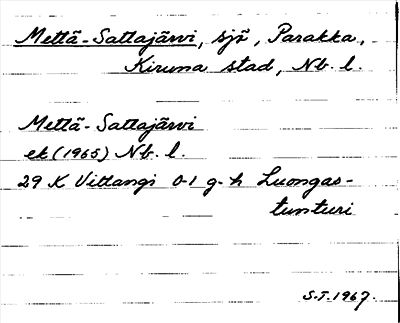 Mettä-Sattajärvi, sjö, Parakka,
Kiruna stad, Nb. l.
Mettä-Sattajärvi
ek (1965) Nb. l.
29 K Vittangi 0-1 g-h Luongas-
tunturi
S.T. 1967.